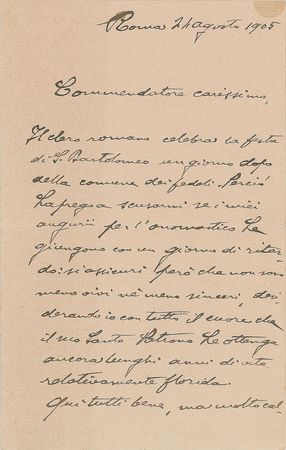 Roma 24 agosto 1905
Commendatore carissimo,
Il clero romano celebra la festa
di S. Bartolomeo un giorno dopo
della comune dei fedeli. Perciò
La prego a scusarmi se i miei
augurii per l'onomastico Le
giungono con un giorno di ritar-
do: si assicuri però che non sono
meno vivi nè meno sinceri, desi-
derando io con tutto il cuore che
il suo Santo Patrono Le ottenga
ancora lunghi anni di vita
relativamente florida.
Qui tutti bene, ma molto cal-